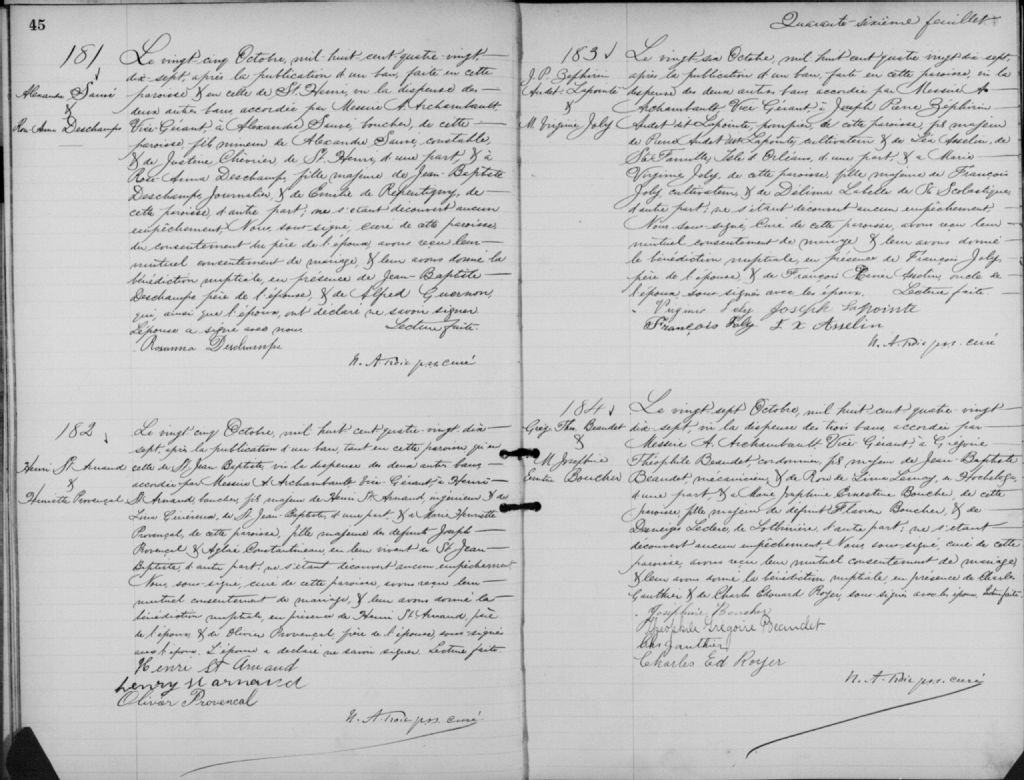 45
181
Alexandre Sauvé
&
Rose Anna Deschamps
Le vingt cinq Octobre, mil huit cent quatre-vingt
dix-sept, après la publication d'un ban, faite en cette
paroisse & en celle de St. Henri, vu la dispense des
deux autres bans accordée par Messire A. Archambault
Vicé Gérant, à Alexandre Sauvé, boucher, de cette
paroisse, fils mineur de Alexandre Sauvé, constable,
& de Justine Chevrier de St. Henri, d'une part, & à
Rose-Anna Deschamps, fille majeure de Jean-Baptiste
Deschamps, journalier, & de Emilie de Repentigny, de
cette paroisse, d'autre part; ne s'étant découvert aucun
empêchement, Nous, sous-signé, curé de cette paroisse,
du consentement du père de l'époux, avons reçu leur
mutuel consentement de mariage, & leur avons donné la
bénédiction nuptiale, en présence de Jean-Baptiste
Deschamps père de l'épouse, & de Alfred Guernon,
qui, ainsi que l'époux, ont déclaré ne savoir signer
l'épouse a signé avec nous. Lecture faite.
Rosanna Deschamps
N. A. Troie pss. curé
182
Henri St. Arnaud
&
Henriette Provençal
Le vingt cinq Octobre, mil huit cent quatre-vingt dix
sept, après la publication d'un ban, tant en cette paroisse qu'en
celle de St. Jean Baptiste, vu la dispense des deux autres bans,
accordée par Messire A. Archambault Vicé Gérant, à Henri
St. Arnaud boucher, fils majeur de Henri St. Arnaud, ingénieur & de
Lina Généreux, de St. Jean-Baptiste, d'une part, & à Marie Henriette
Provençal, de cette paroisse, fille majeure des defunts Joseph
Provençal & Aglaé Constantineau, en leur vivant de St. Jean-
Baptiste, d'autre part, ne s'étant découvert aucun empêchement
Nous, sous-signé, curé de cette paroisse, avons reçu leur
mutuel consentement de mariage, & leur avons donné la
bénédiction nuptiale, en présence de Henri St. Arnaud, père
de l'époux, & de Olivier Provençal, frère de l'épouse, sous-signés
avec l'époux. L'épouse a déclaré ne savoir signer. Lecture faite.
Henri St Arnaud
Henry St arnaud
Olivar Provencal
N. A. Troie pss. curé
Quarante-sixième feuillet
183
J. P. Zéphirin
Audet-Lapointe
&
M. Virginie Joly
Le vingt six Octobre, mil huit cent quatre vingt dix sept,
après la publication d'un ban, faite en cette paroisse, vu la
dispense des deux autres bans accordée par Messire A.
Archambault Vicé Gérant, à Joseph Pierre Zéphirin
Audet dit Lapointe, pompier, de cette paroisse, fils majeur
de Pierre Audet dit Lapointe, cultivateur, & de Léa Asselin, de
Ste Famille, Isle d'Orléans, d'une part, & à Marie
Virginie Joly, de cette paroisse, fille majeure de François
Joly, cultivateur, & de Délima Labelle de Ste Scolastique,
d'autre part; ne s'étant découvert aucun empêchement,
Nous, sous-signé, Curé de cette paroisse, avons reçu leur
mutuel consentement de mariage & leur avons donné
la bénédiction nuptiale, en présence de François Joly,
père de l'épouse, & de François Xavier Asselin, oncle de
l'époux, sous-signés avec les époux. Lecture faite.
Virginie Joly Joseph Lapointe
François Joly F. X Asselin
N. A. Troie pss. curé
184
Grég. Thé. Beaudet
&
M. Joséphine
Ernestine Boucher
Le vingt sept Octobre, mil huit cent quatre-vingt
dix-sept, vu la dispense des trois bans accordée par
Messire A. Archambault Vicé Gérant, à Grégoire
Théophile Beaudet, cordonnier, fils majeur de Jean Baptiste
Beaudet mécanicien, & de Rose de Lima Lemay, de Hochelaga,
d'une part, & à Marie Joséphine Ernestine Boucher, de cette
paroisse, fille majeure de defunt Flavien Boucher, & de
Leclerc, de Lotbinière, d'autre part, ne s'étant
découvert aucun empêchement, Nous, sous-signé, curé de cette
paroisse, avons reçu leur mutuel consentement de mariage
& leur avons donné la bénédiction nuptiale, en présence de Charles
Gauthier & de Charles Edouard Royer, sous-signés avec les époux. Lecture faite.
Joséphine Boucher
Théophile Gregoire Beaudet
Chs Gauthier
Charles Ed Royer
N. A. Troie pss. curé